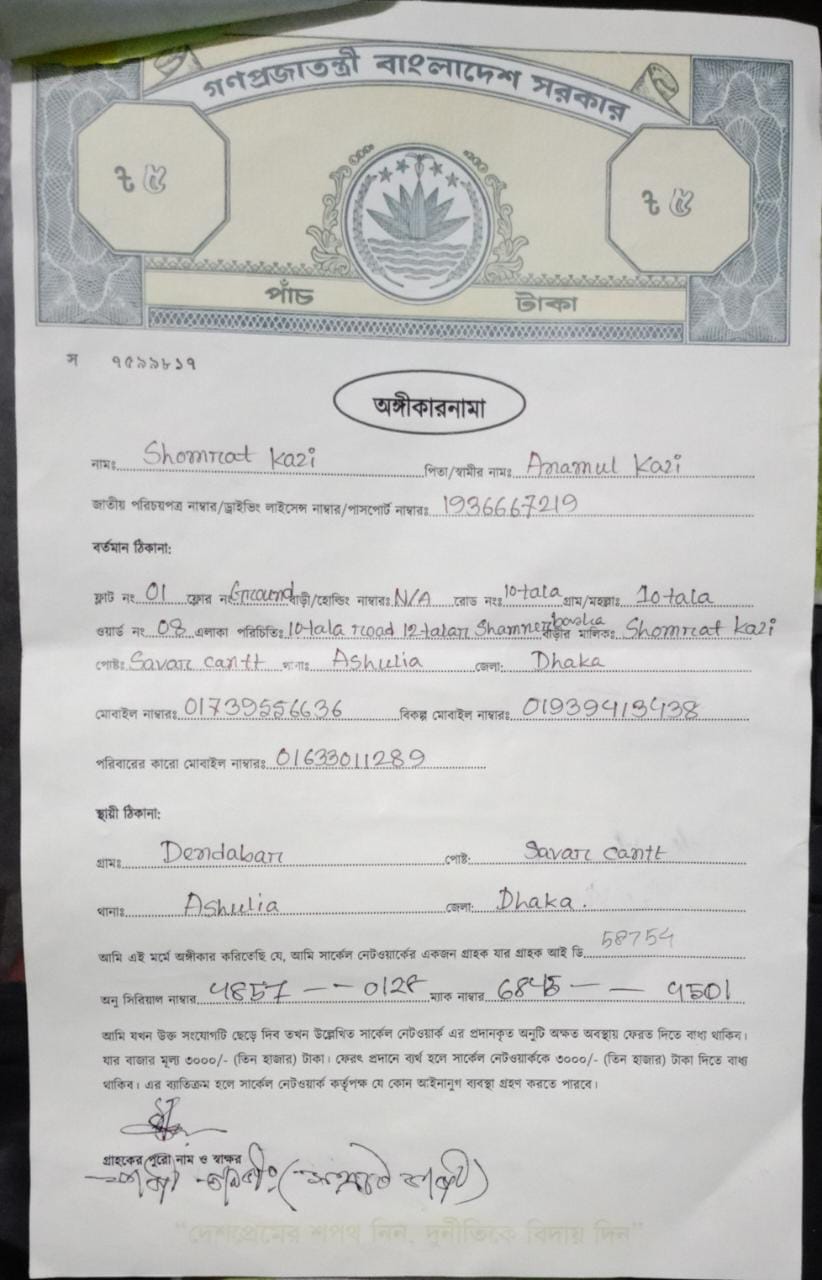 গণপ্রজাতন্ত্রী বাংলাদেশ সরকার
৳ ৫ ৳ ৫
পাঁচ টাকা
স ৭৫৯৯৮১৭
অঙ্গীকারনামা
নামঃ Shomrat Kazi পিতা/স্বামীর নামঃ Anamul Kazi
জাতীয় পরিচয়পত্র নাম্বার/ড্রাইভিং লাইসেন্স নাম্বার/পাসপোর্ট নাম্বারঃ 1936667219
বর্তমান ঠিকানা:
ফ্লাট নং 01 ফ্লোর নং Ground বাড়ী/হোল্ডিং নাম্বারঃ N/A রোড নংঃ 10-tala গ্রাম/মহল্লাঃ 10-tala
ওয়ার্ড নং 08 এলাকা পরিচিতিঃ 10-tala road 12-talar Shamner বাড়ীর মালিকঃ Shomrat kazi
পোষ্টঃ Savar cantt থানাঃ Ashulia জেলা: Dhaka
মোবাইল নাম্বারঃ 01739556636 বিকল্প মোবাইল নাম্বারঃ 01939413438
পরিবারের কারো মোবাইল নাম্বারঃ 01633011289
স্থায়ী ঠিকানা:
গ্রামঃ Dendabar পোষ্ট: Savar cantt
থানাঃ Ashulia জেলা: Dhaka.
আমি এই মর্মে অঙ্গীকার করিতেছি যে, আমি সার্কেল নেটওয়ার্কের একজন গ্রাহক যার গ্রাহক আই ডি 58754
অনু সিরিয়াল নাম্বার 4857 -- 0128 ম্যাক নাম্বার 6845 -- 9501
আমি যখন উক্ত সংযোগটি ছেড়ে দিব তখন উল্লেখিত সার্কেল নেটওয়ার্ক এর প্রদানকৃত অনুটি অক্ষত অবস্থায় ফেরত দিতে বাধ্য থাকিব।
যার বাজার মূল্য ৩০০০/- (তিন হাজার) টাকা। ফেরৎ প্রদানে ব্যর্থ হলে সার্কেল নেটওয়ার্ককে ৩০০০/- (তিন হাজার) টাকা দিতে বাধ্য
থাকিব। এর ব্যতিক্রম হলে সার্কেল নেটওয়ার্ক কর্তৃপক্ষ যে কোন আইনানুগ ব্যবস্থা গ্রহণ করতে পারবে।
গ্রাহকের পুরো নাম ও স্বাক্ষর
"দেশপ্রেমের শপথ নিন, দুর্নীতিকে বিদায় দিন"